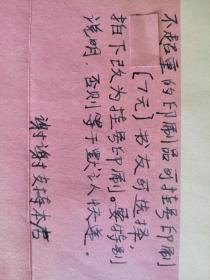 不超重的印刷品可挂号印刷
(7元) 书友可选择
拍下改为挂号印刷。要特别
说明。否则等于默认快递。
谢谢支持本店